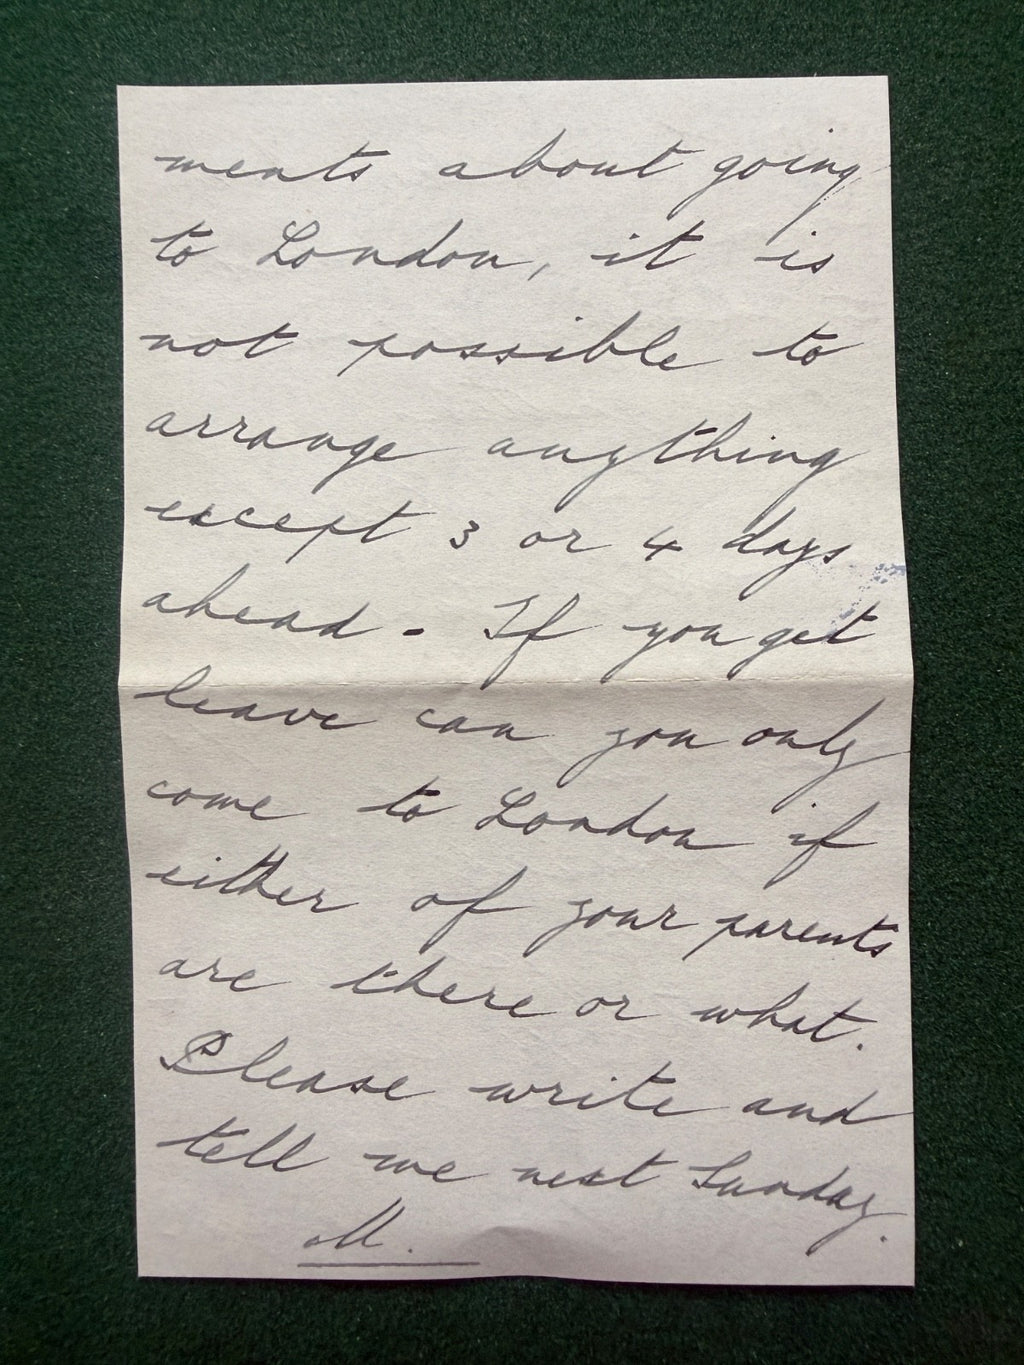 ments about going
to London, it is
not possible to
arrange anything
except 3 or 4 days
ahead. If you get
leave can you only
come to London if
either of your parents
are there or what.
Please write and
tell me next Sunday.
M.